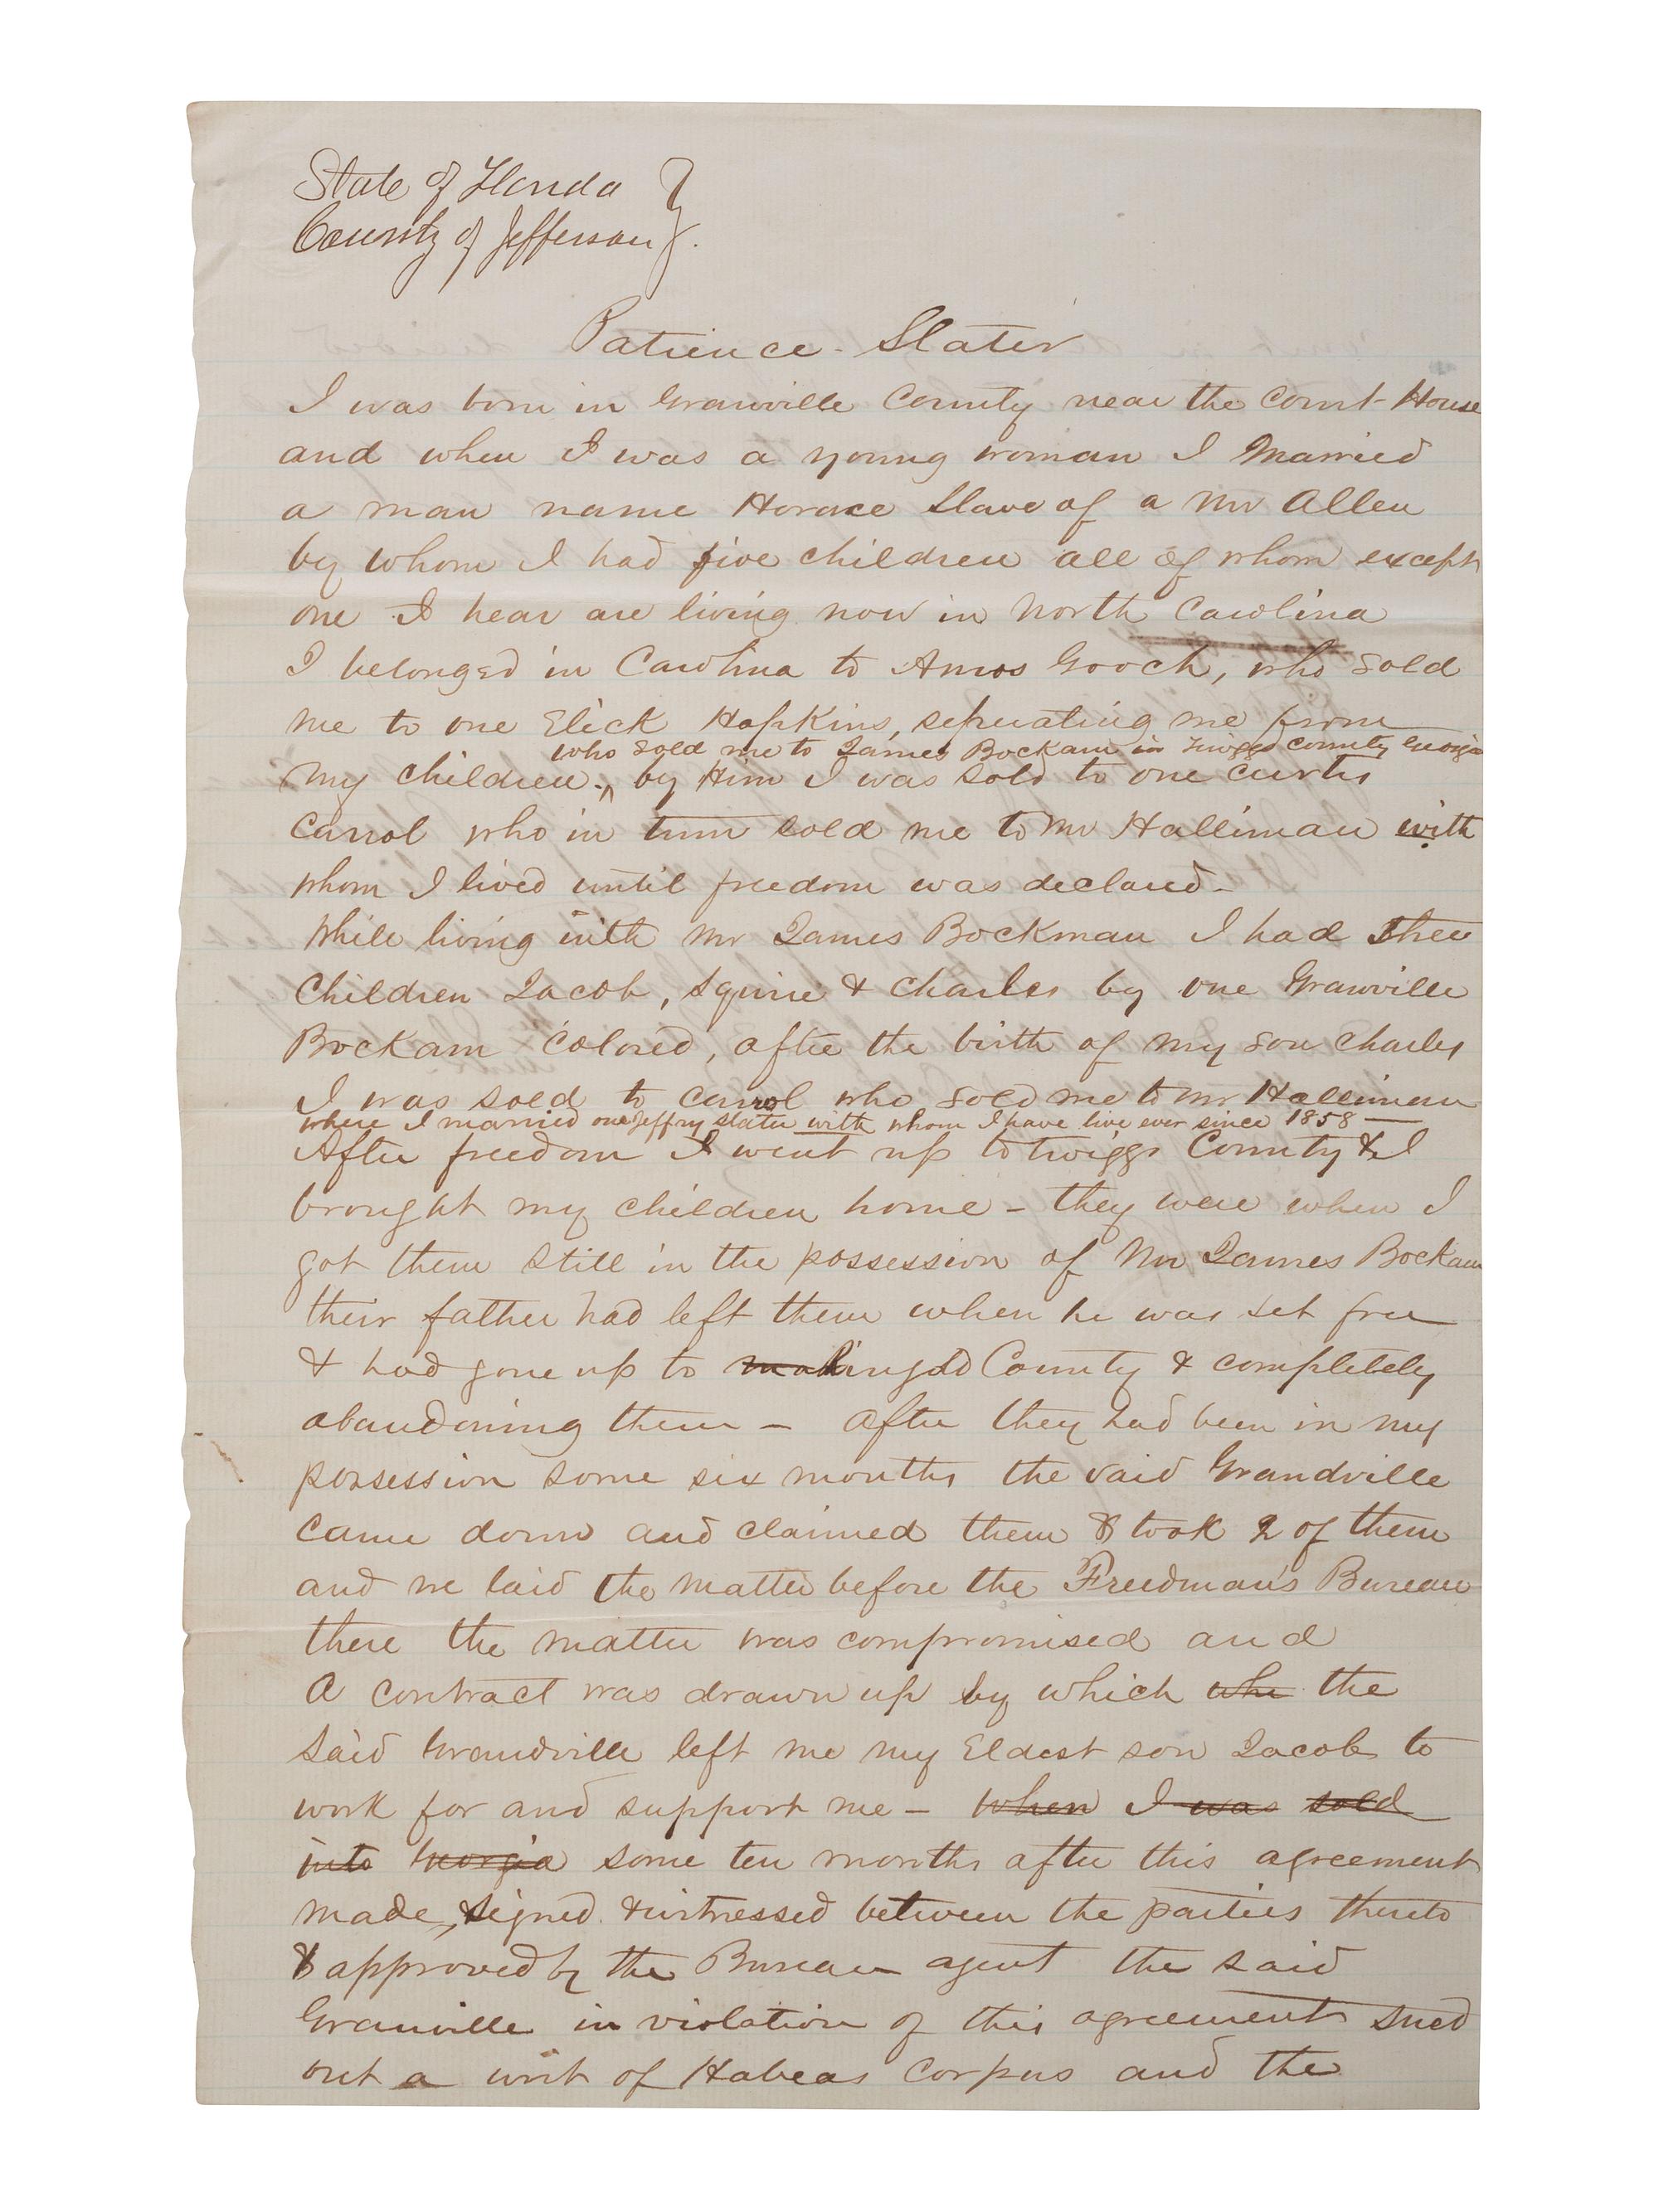 State of Florida }
County of Jefferson }.
Patience Slater
I was born in Granville County near the Court House
and when I was a young woman I Married
a man name Horace Slave of a Mr Allen
by whom I had five children all of whom except
one I hear are living now in North Carolina
I belonged in Carolina to Amos Gooch, who sold
me to one Elick Hopkins, seperating me from
who sold me to James Bockam in Twiggs County Georgia
my children. ^ by Him I was sold to one Curtis
Carrol who in turn sold me to Mr Halliman with
whom I lived until freedom was declared-
While living with Mr James Bockman I had three
Children Jacob, Squire & Charles by one Granville
Bockam Colored, after the birth of my son Charles
I was sold to Carrol who sold me to Mr Halliman
where I married one Jeffry Slater with whom I have live ever since 1858 —
After freedom I went up to twiggs County & I
brought my children home - they were when I
got them still in the possession of Mr James Bockam
their father had left them when he was set free
& had gone up to County & completely
abandoning them - After they had been in my
possession some six months the said Grandville
came down and claimed them & took 2 of them
and we laid the matter before the Freedman's Bureau
there the matter was compromised and
A contract was drawn up by which whe the
said Grandville left me my Eldest son Jacob to
work for and support me - when I was sold
into Georgia some ten months after this agreement
made, signed & witnessed between the parties thereto
& approved by the Bureau agent the said
Granville in violation of this agreement sued
out a writ of Habeas Corpus and the